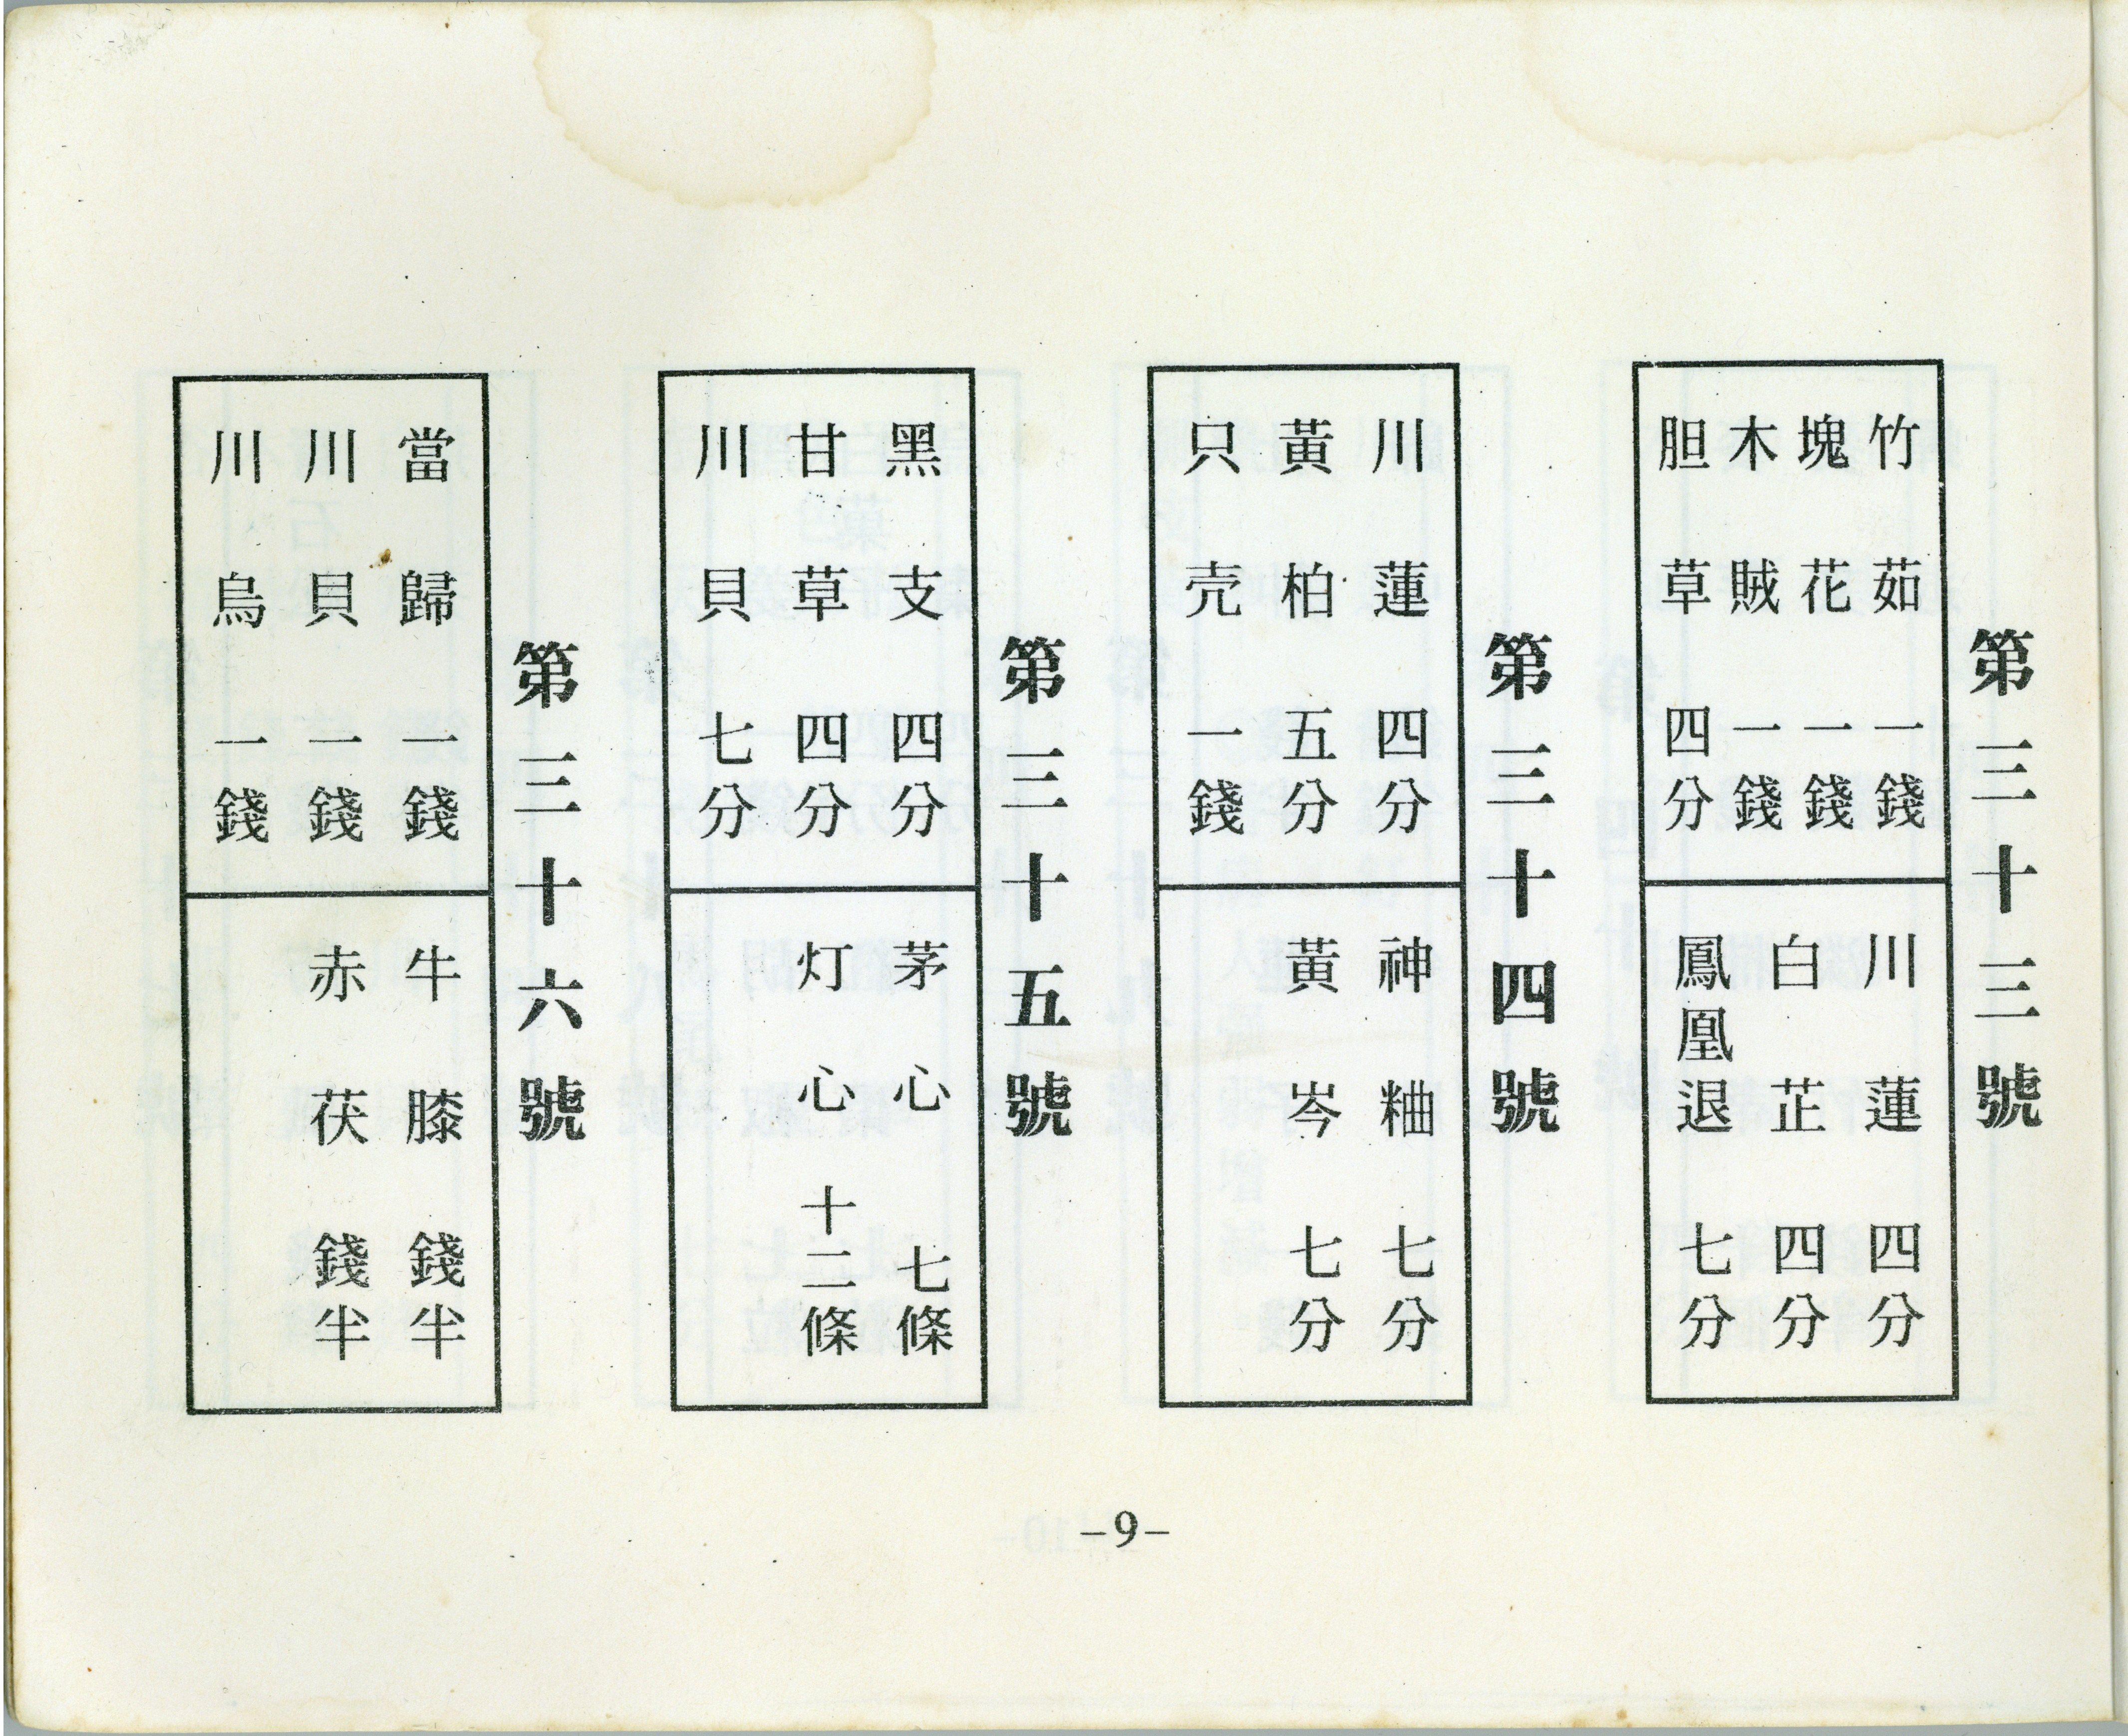 第三十三號
竹茹一錢
塊花一錢
木賊一錢
胆草四分
川蓮四分
白芷四分
鳳凰退七分
第三十四號
川蓮四分
黃柏五分
只壳一錢
神粬七分
黃岑七分
第三十五號
黑支四分
甘草四分
川貝七分
茅心七條
灯心十二條
第三十六號
當歸一錢
川貝一錢
川烏一錢
牛膝錢半
赤茯錢半
-9-